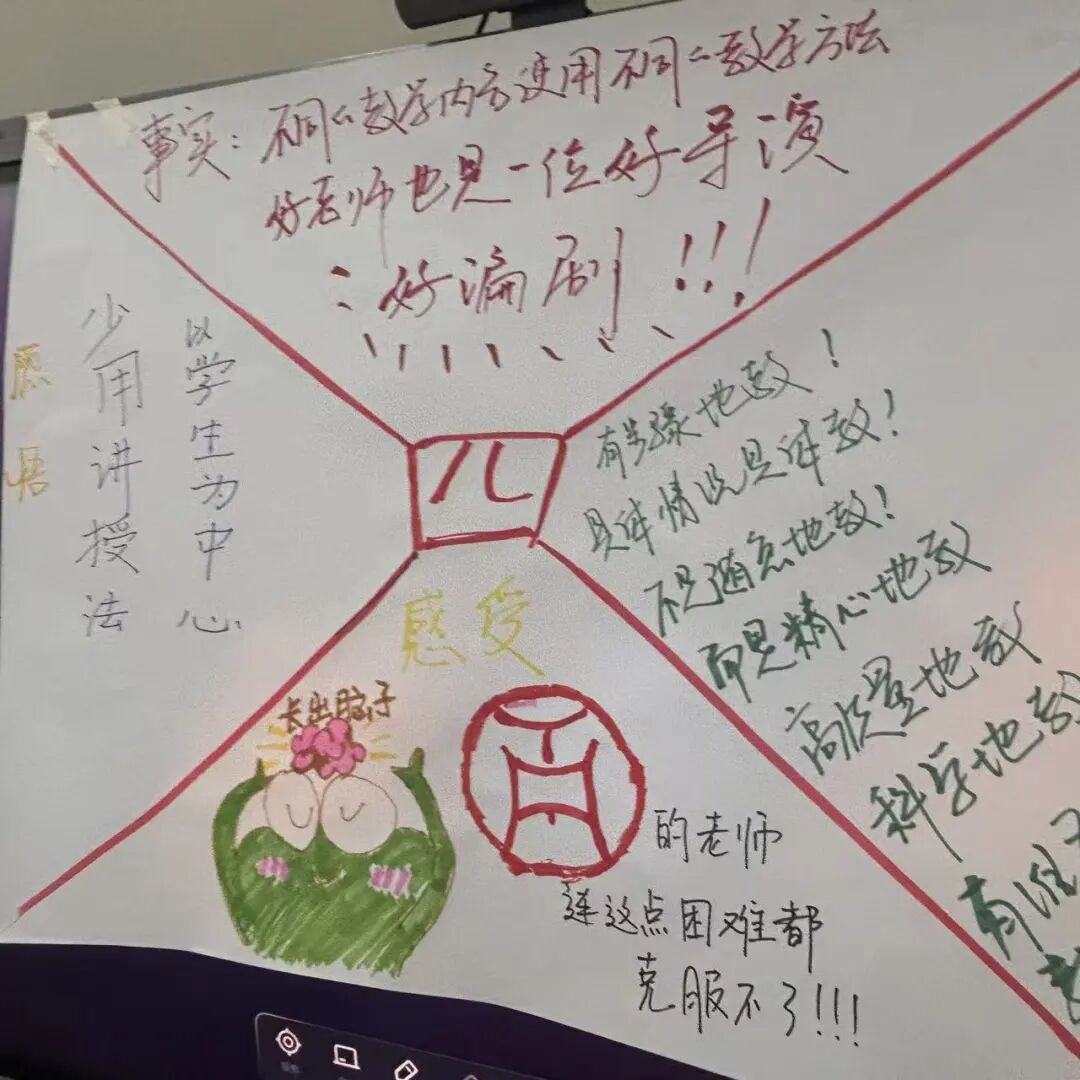 事实：不同的教学内容使用不同的教学方法
好老师也是一位好导演
好编剧！！！
感悟
少用讲授法
以学生为中心
有步骤地教！
具体情况具体教！
不是随意地教！
而是精心地教
高质量地教
科学地教
感受
长出脑子
的老师
连这点困难都
克服不了!!!